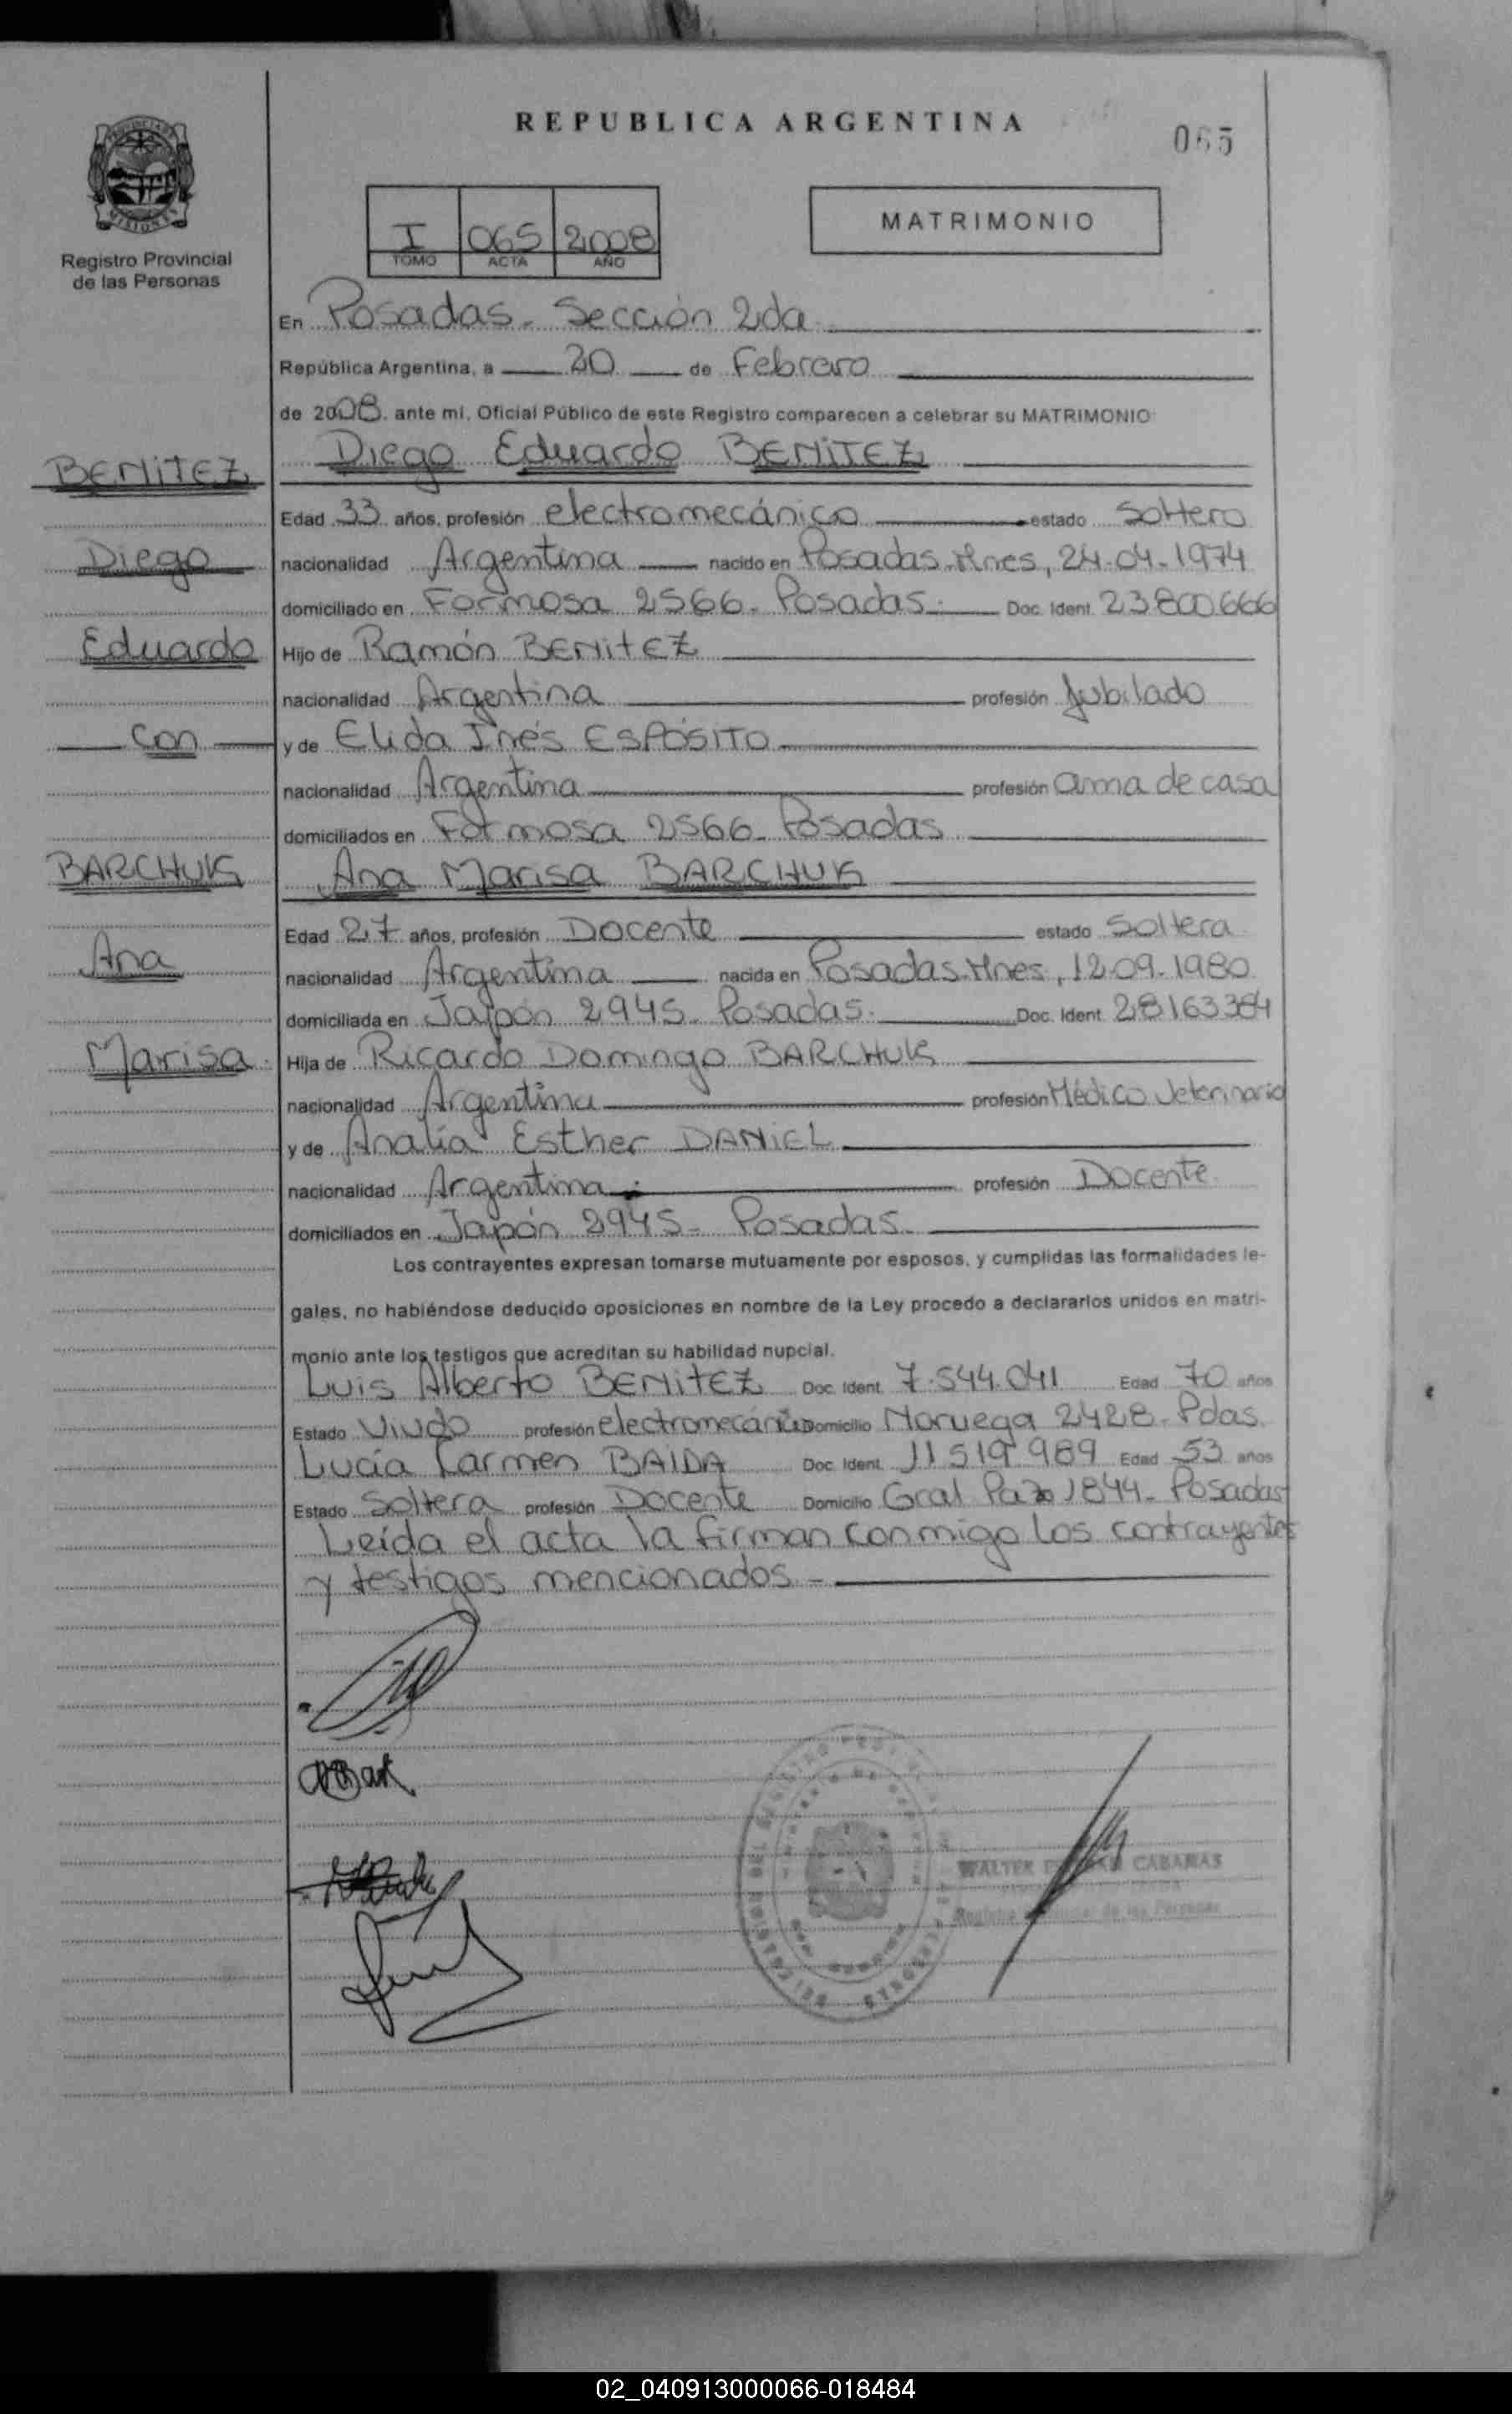 REPUBLICA ARGENTINA
065
PROVINCIA DE
MISIONES
Registro Provincial
de las Personas
MATRIMONIO
I 065 2008
TOMO ACTA AÑO
En Posadas - Sección 2da
República Argentina, a 20 de Febrero
de 2008. ante mi, Oficial Público de este Registro comparecen a celebrar su MATRIMONIO
BENITEZ
Diego Eduardo BENITEZ
Edad 33 años, profesión electromecánico estado Soltero
Diego
nacionalidad Argentina nacido en Posadas-Mnes, 24-04-1974
domiciliado en Formosa 2566- Posadas. Doc. Ident. 23.800.666
Eduardo
Hijo de Ramón BENITEZ
nacionalidad Argentina profesión Jubilado
con
y de Elida Inés ESPÓSITO
nacionalidad Argentina profesión ama de casa
domiciliados en Formosa 2566- Posadas
BARCHUK
Ana Marisa BARCHUK
Edad 27 años, profesión Docente estado Soltera
Ana
nacionalidad Argentina nacida en Posadas-Mnes, 12-09-1980
domiciliada en Japón 2945- Posadas. Doc. Ident. 28163384
Marisa
Hija de Ricardo Domingo BARCHUK
nacionalidad Argentina profesión Médico Veterinario
y de Analía Esther DANIEL
nacionalidad Argentina profesión Docente
domiciliados en Japón 2945- Posadas-
Los contrayentes expresan tomarse mutuamente por esposos, y cumplidas las formalidades le-
gales, no habiéndose deducido oposiciones en nombre de la Ley procedo a declararlos unidos en matri-
monio ante los testigos que acreditan su habilidad nupcial.
Luis Alberto BENITEZ Doc. Ident. 7.544.041 Edad 70 años
Estado Viudo profesión electromecánico Domicilio Noruega 2428- Pdas.
Lucía Carmen BAIDA Doc. Ident. 11 519 989 Edad 53 años
Estado Soltera profesión Docente Domicilio Gral Paz 1844- Posadas
Leída el acta la firman conmigo los contrayentes
y testigos mencionados -
WALTER CABAÑAS
02_040913000066-018484